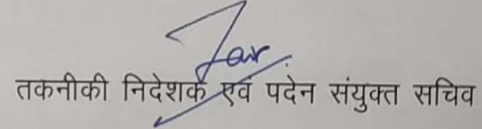 तकनीकी निदेशक एवं पदेन संयुक्त सचिव